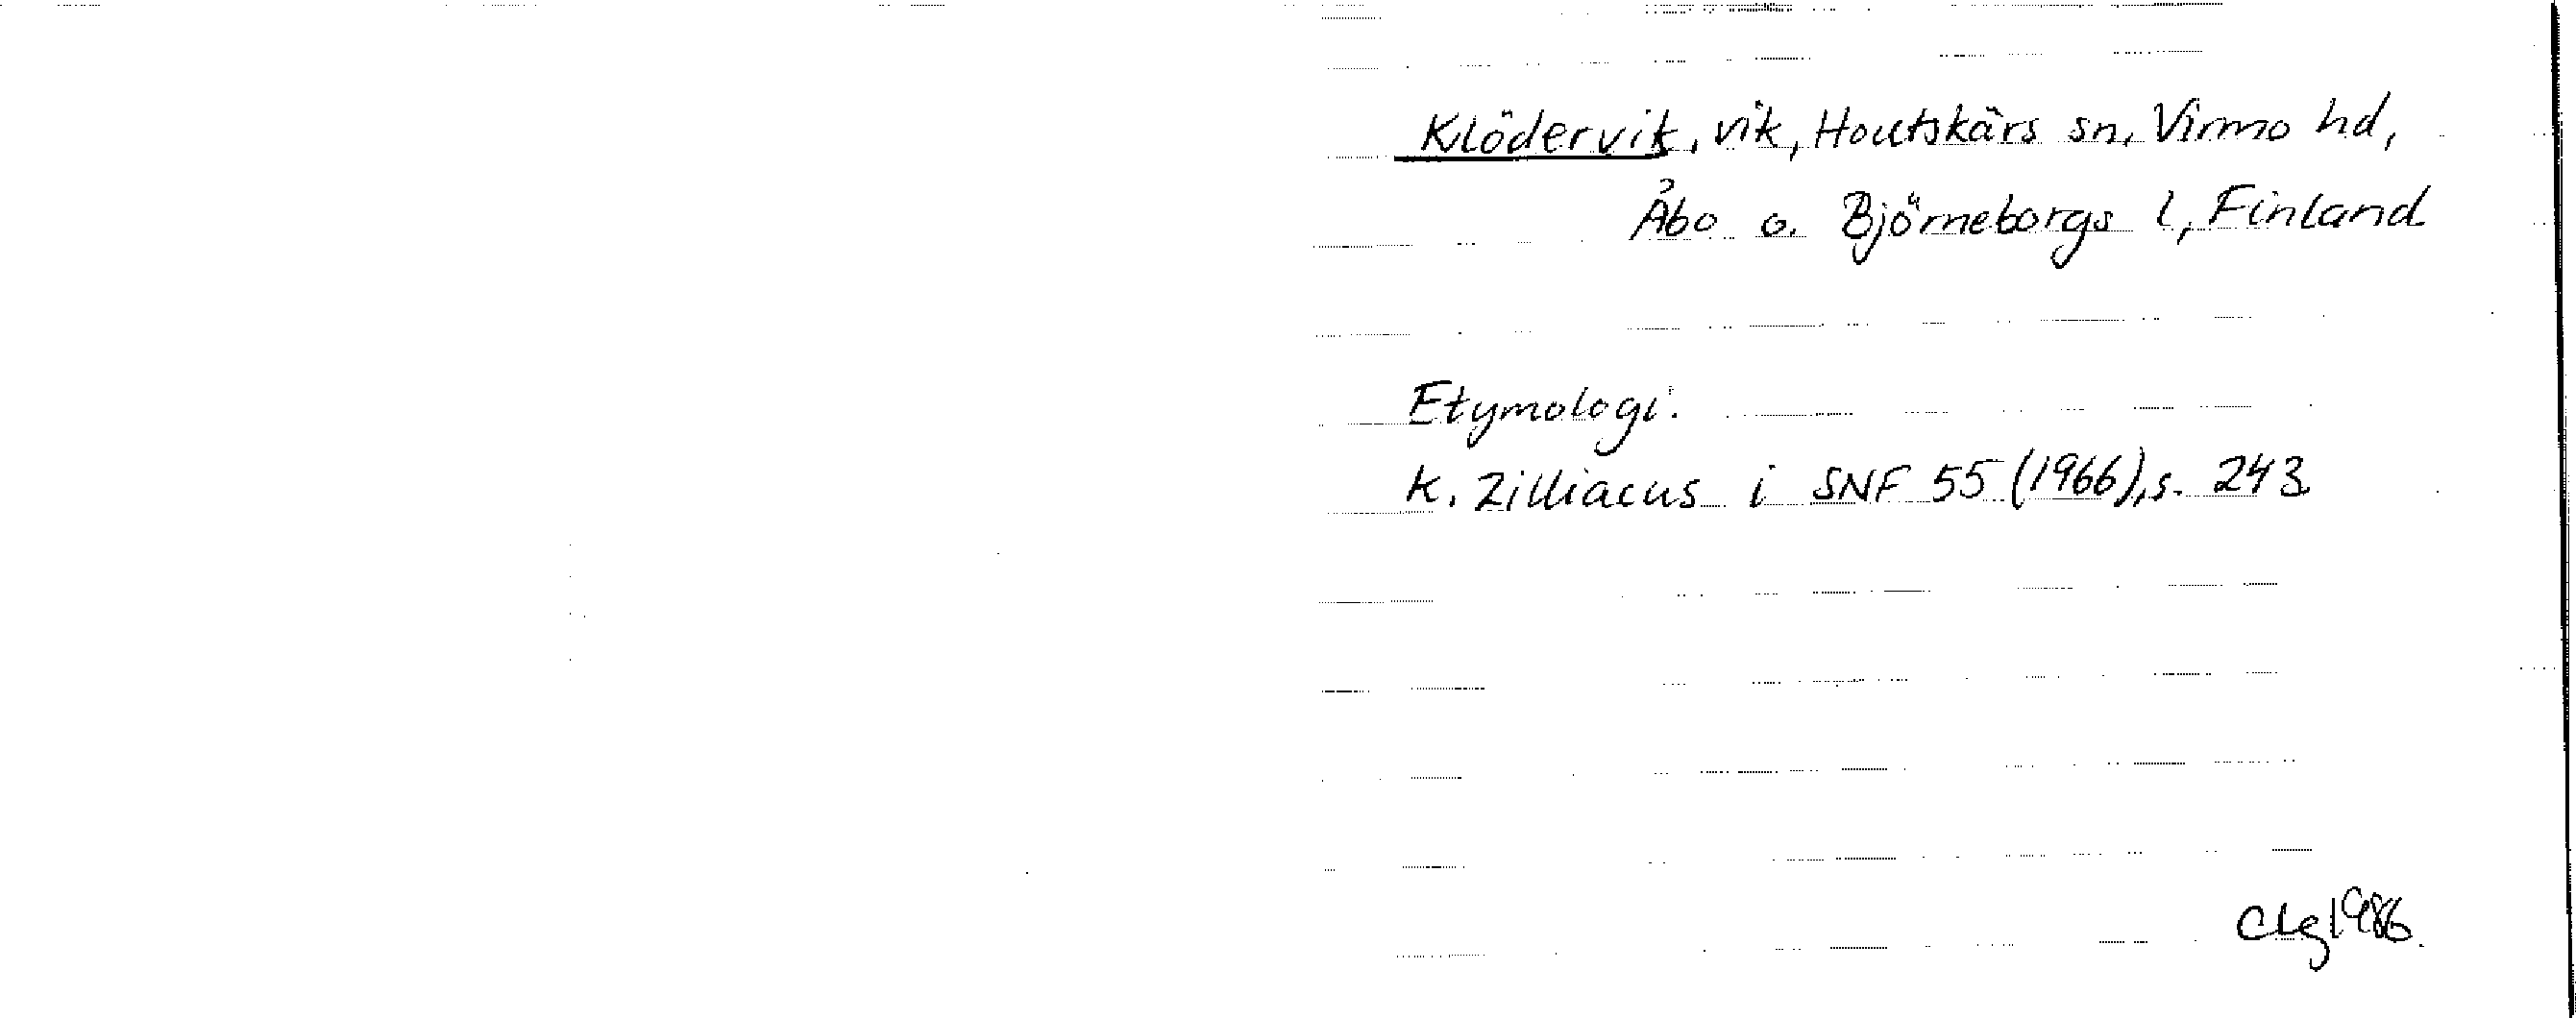 Klödervik, vik, Houtskärs sn, Virmo hd,
Åbo o. Björneborgs l, Finland
Etymologi.
K. Zilliacus i SNF 55 (1966), s. 243.
CLg 1986.